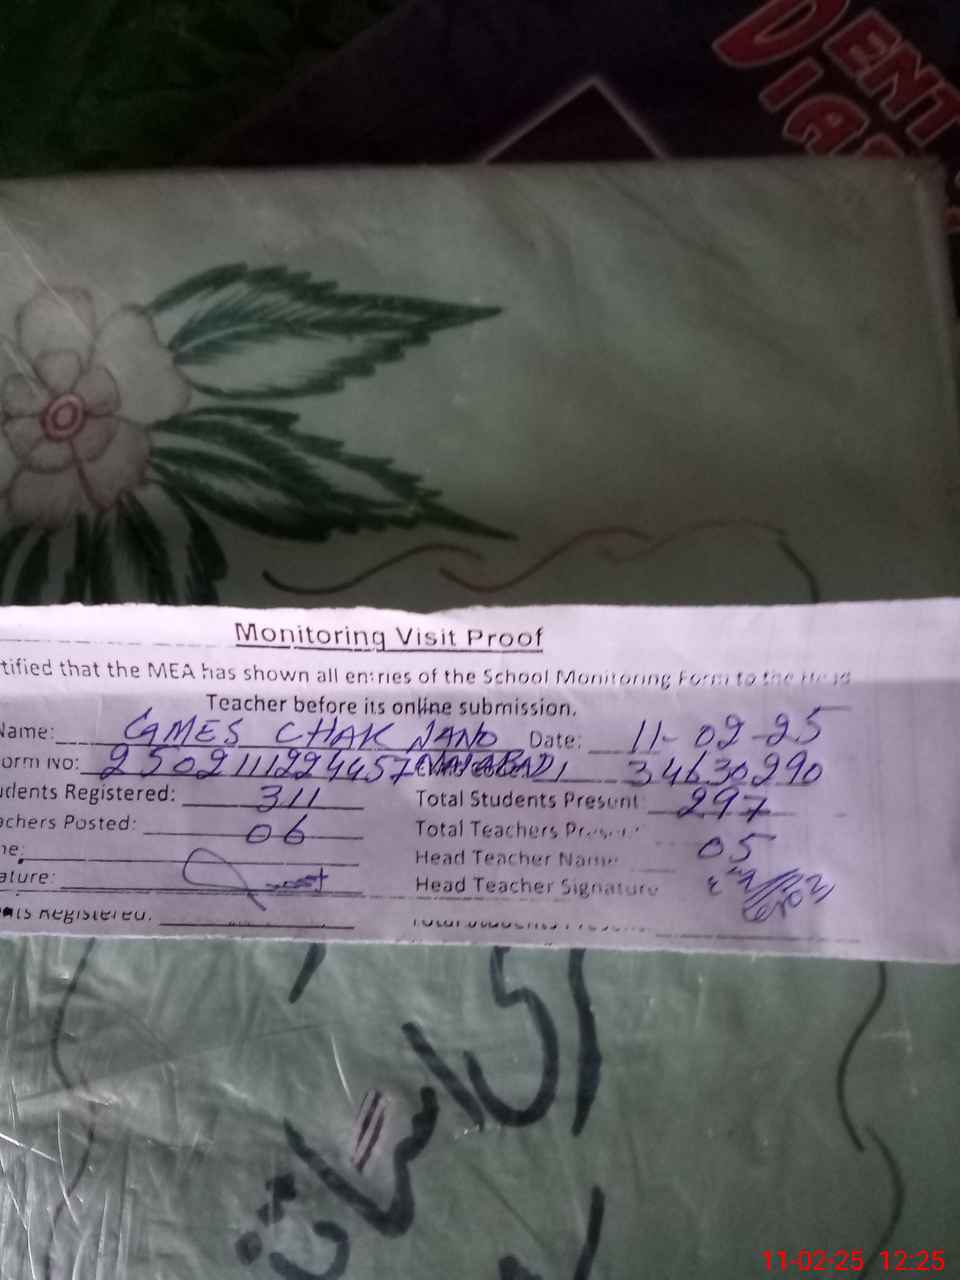 DENT
DIA
Monitoring Visit Proof
tified that the MEA has shown all entries of the School Monitoring Form to the Head
Teacher before its online submission.
Name: GMES CHAK NANO Date: 11-02-25
orm No: 2502111224457 34630290
dents Registered: 311 Total Students Present: 297
achers Posted: 06 Total Teachers Present 05
me: Head Teacher Name
ature: Head Teacher Signature
ts Registered: Total Students Present
11-02-25 12:25